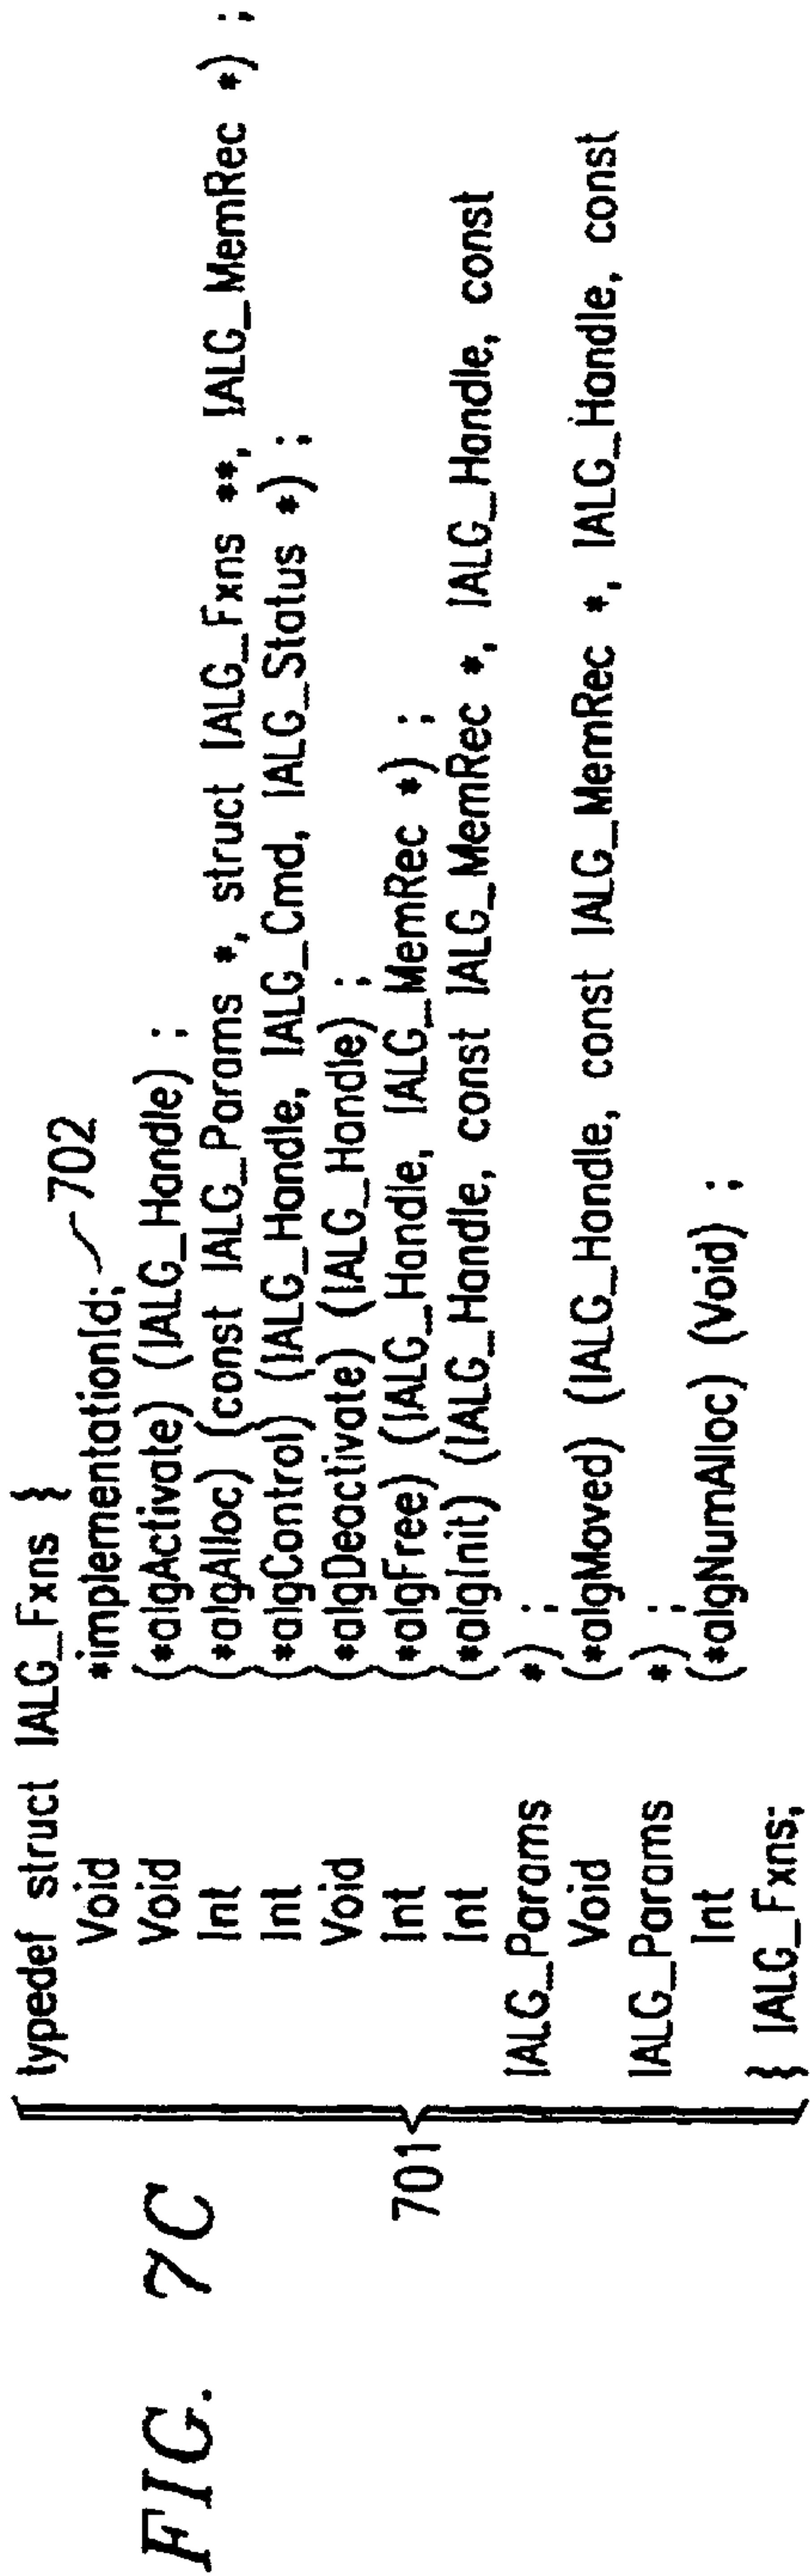 FIG. 7C
701
typedef struct IALG_Fxns {
Void *implementationId; 702
Void (*algActivate) (IALG_Handle) ;
Int (*algAlloc) (const IALG_Params *, struct IALG_Fxns **, IALG_MemRec *) ;
Int (*algControl) (IALG_Handle, IALG_Cmd, IALG_Status *) ;
Void (*algDeactivate) (IALG_Handle) ;
Int (*algFree) (IALG_Handle, IALG_MemRec *) ;
Int (*algInit) (IALG_Handle, const IALG_MemRec *, IALG_Handle, const
IALG_Params *) ;
Void (*algMoved) (IALG_Handle, const IALG_MemRec *, IALG_Handle, const
IALG_Params *) ;
Int (*algNumAlloc) (Void) ;
} IALG_Fxns;